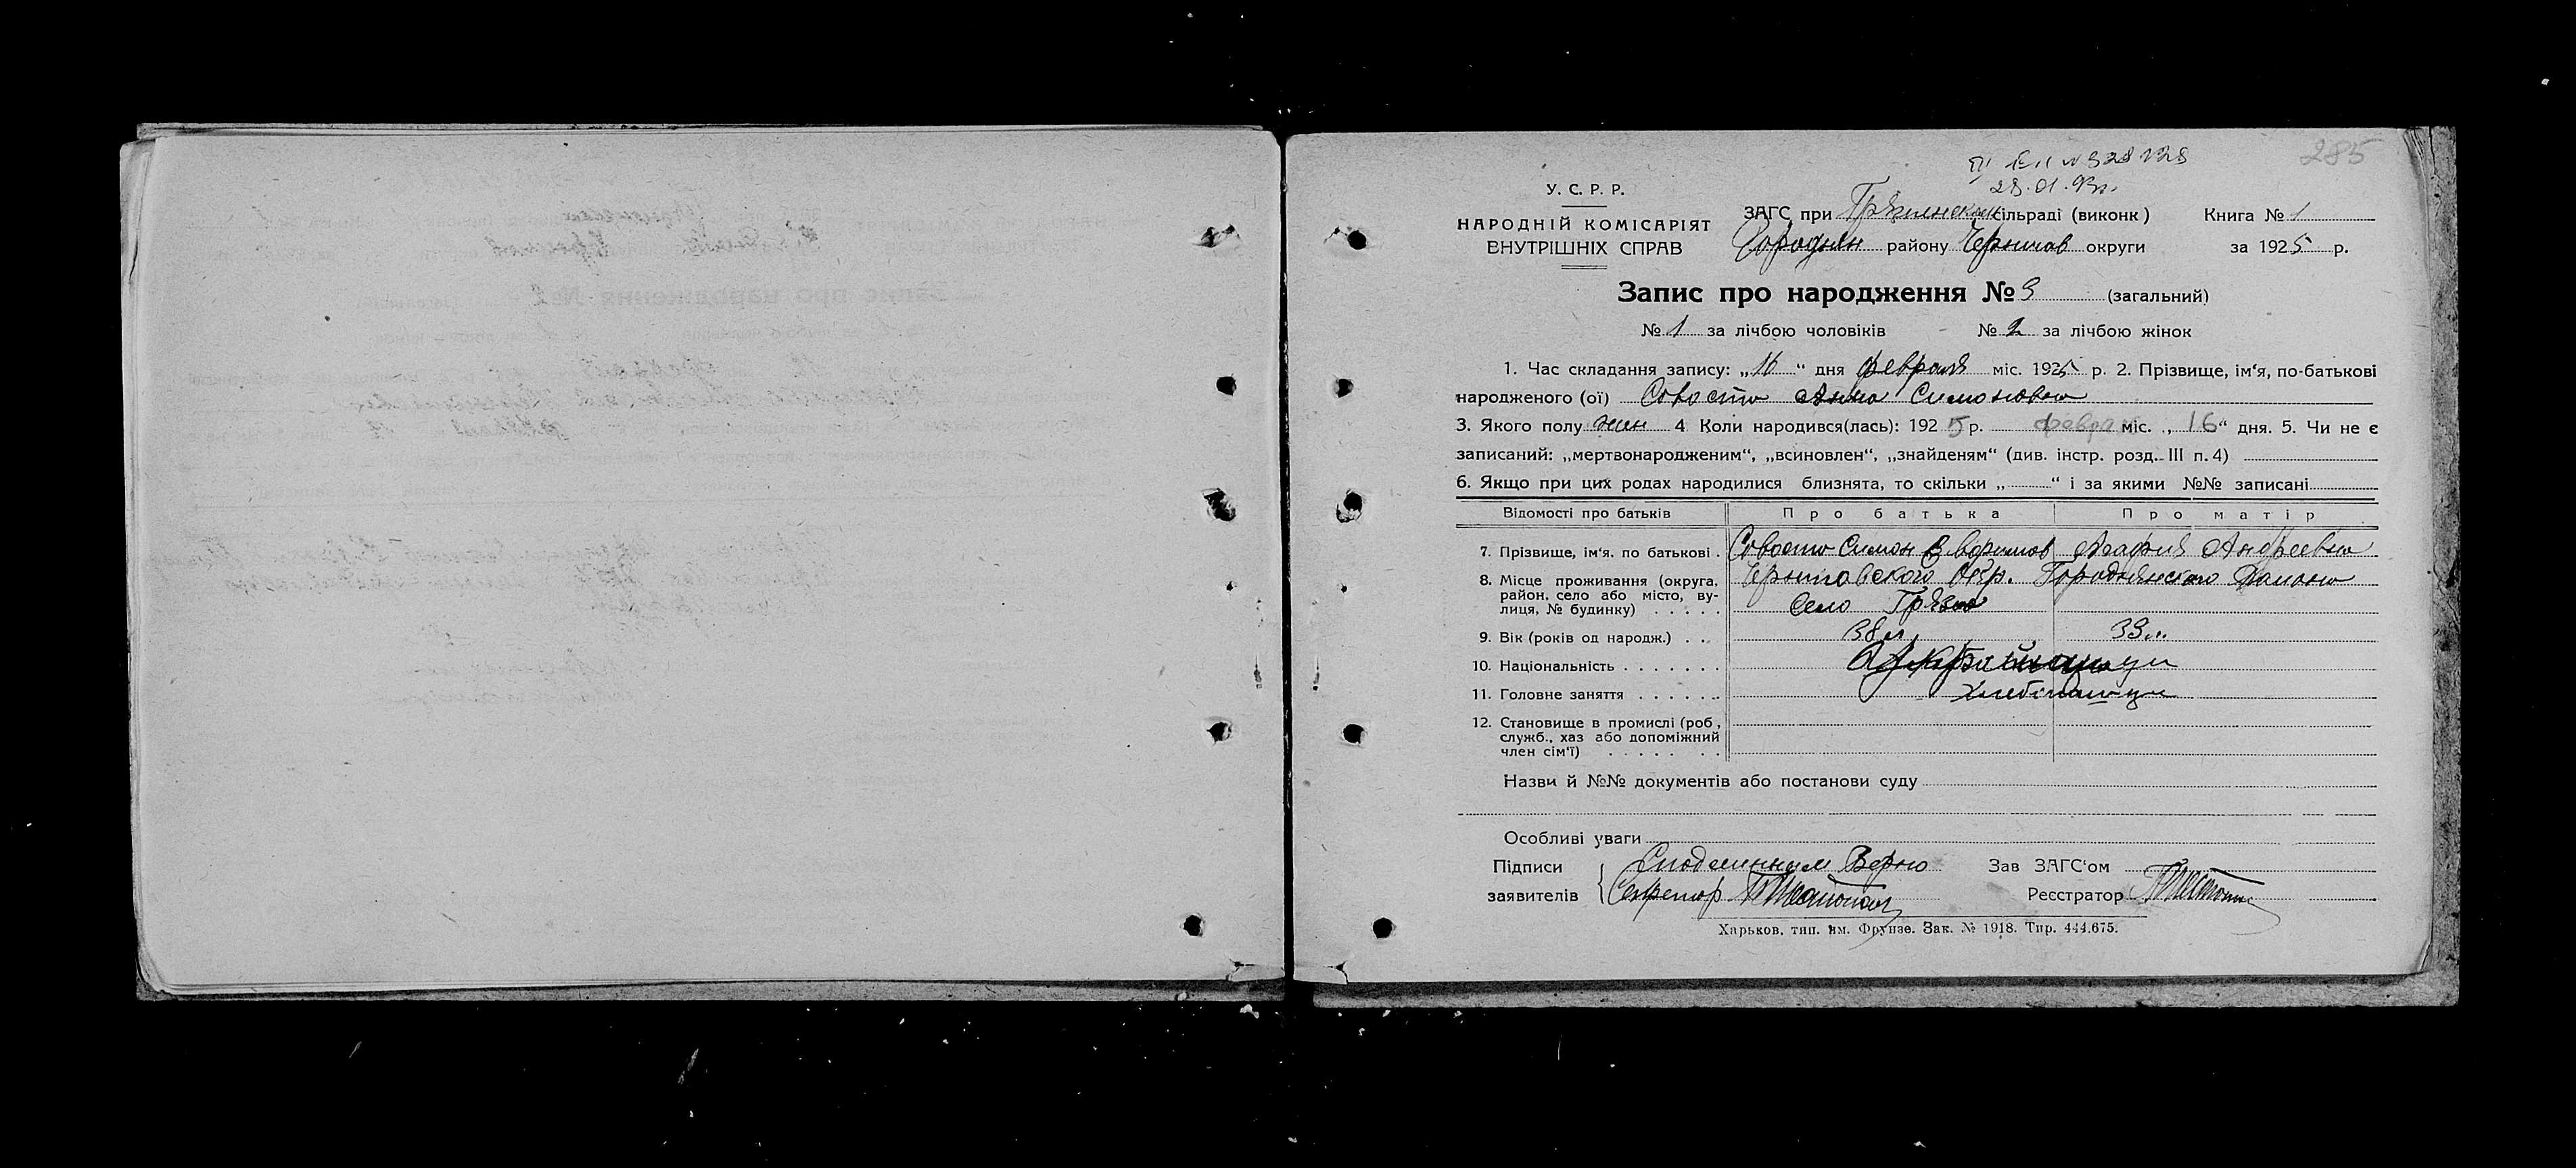 285
28.01.93г.
У. С. Р. Р.
НАРОДНІЙ КОМІСАРІЯТ
ВНУТРІШНІХ СПРАВ
ЗАГС при Грязнянском сільраді (виконк) Книга № 1
Городнян району Чернигов округи за 1925 р.
Запис про народження № 3 (загальний)
№ 1 за лічбою чоловіків № 2 за лічбою жінок
1. Час складання запису: „16“ дня февраля міс. 1925 р. 2. Прізвище, ім‘я, по-батькові
народженого (ої) Совоста Анна Симоновна
3. Якого полу жен 4 Коли народився(лась): 1925 р. февра міс. „16“ дня. 5. Чи не є
записаний: „мертвонародженим“, „всиновлен“, „знайденям“ (див. інстр. розд. III п. 4)
6. Якщо при цих родах народилися близнята, то скільки „ “ і за якими №№ записані
Відомості про батьків Про батька Про матір
7. Прізвище, ім‘я. по батькові . Совоста Симон Агафия Андреевна
8. Місце проживання (округа, Черниговского Окр. Городнянского Района
район, село або місто, ву-
лиця, № будинку) . . . . . Село Грязна
9. Вік (років од народж.) . . 38 л. 33 л.
10. Національність . . . . . . .
11. Головне заняття . . . . . . Хлебопашцы
12. Становище в промислі (роб,
служб., хаз або допоміжний
член сім‘ї) . . . . . . . .
Назви й №№ документів або постанови суду
Особливі уваги
Підписи С подлинным Верно Зав ЗАГС‘ом
заявителів Секретар Реєстратор
Харьков, тип. им. Фрунзе. Зак. № 1918. Тир. 444.675.